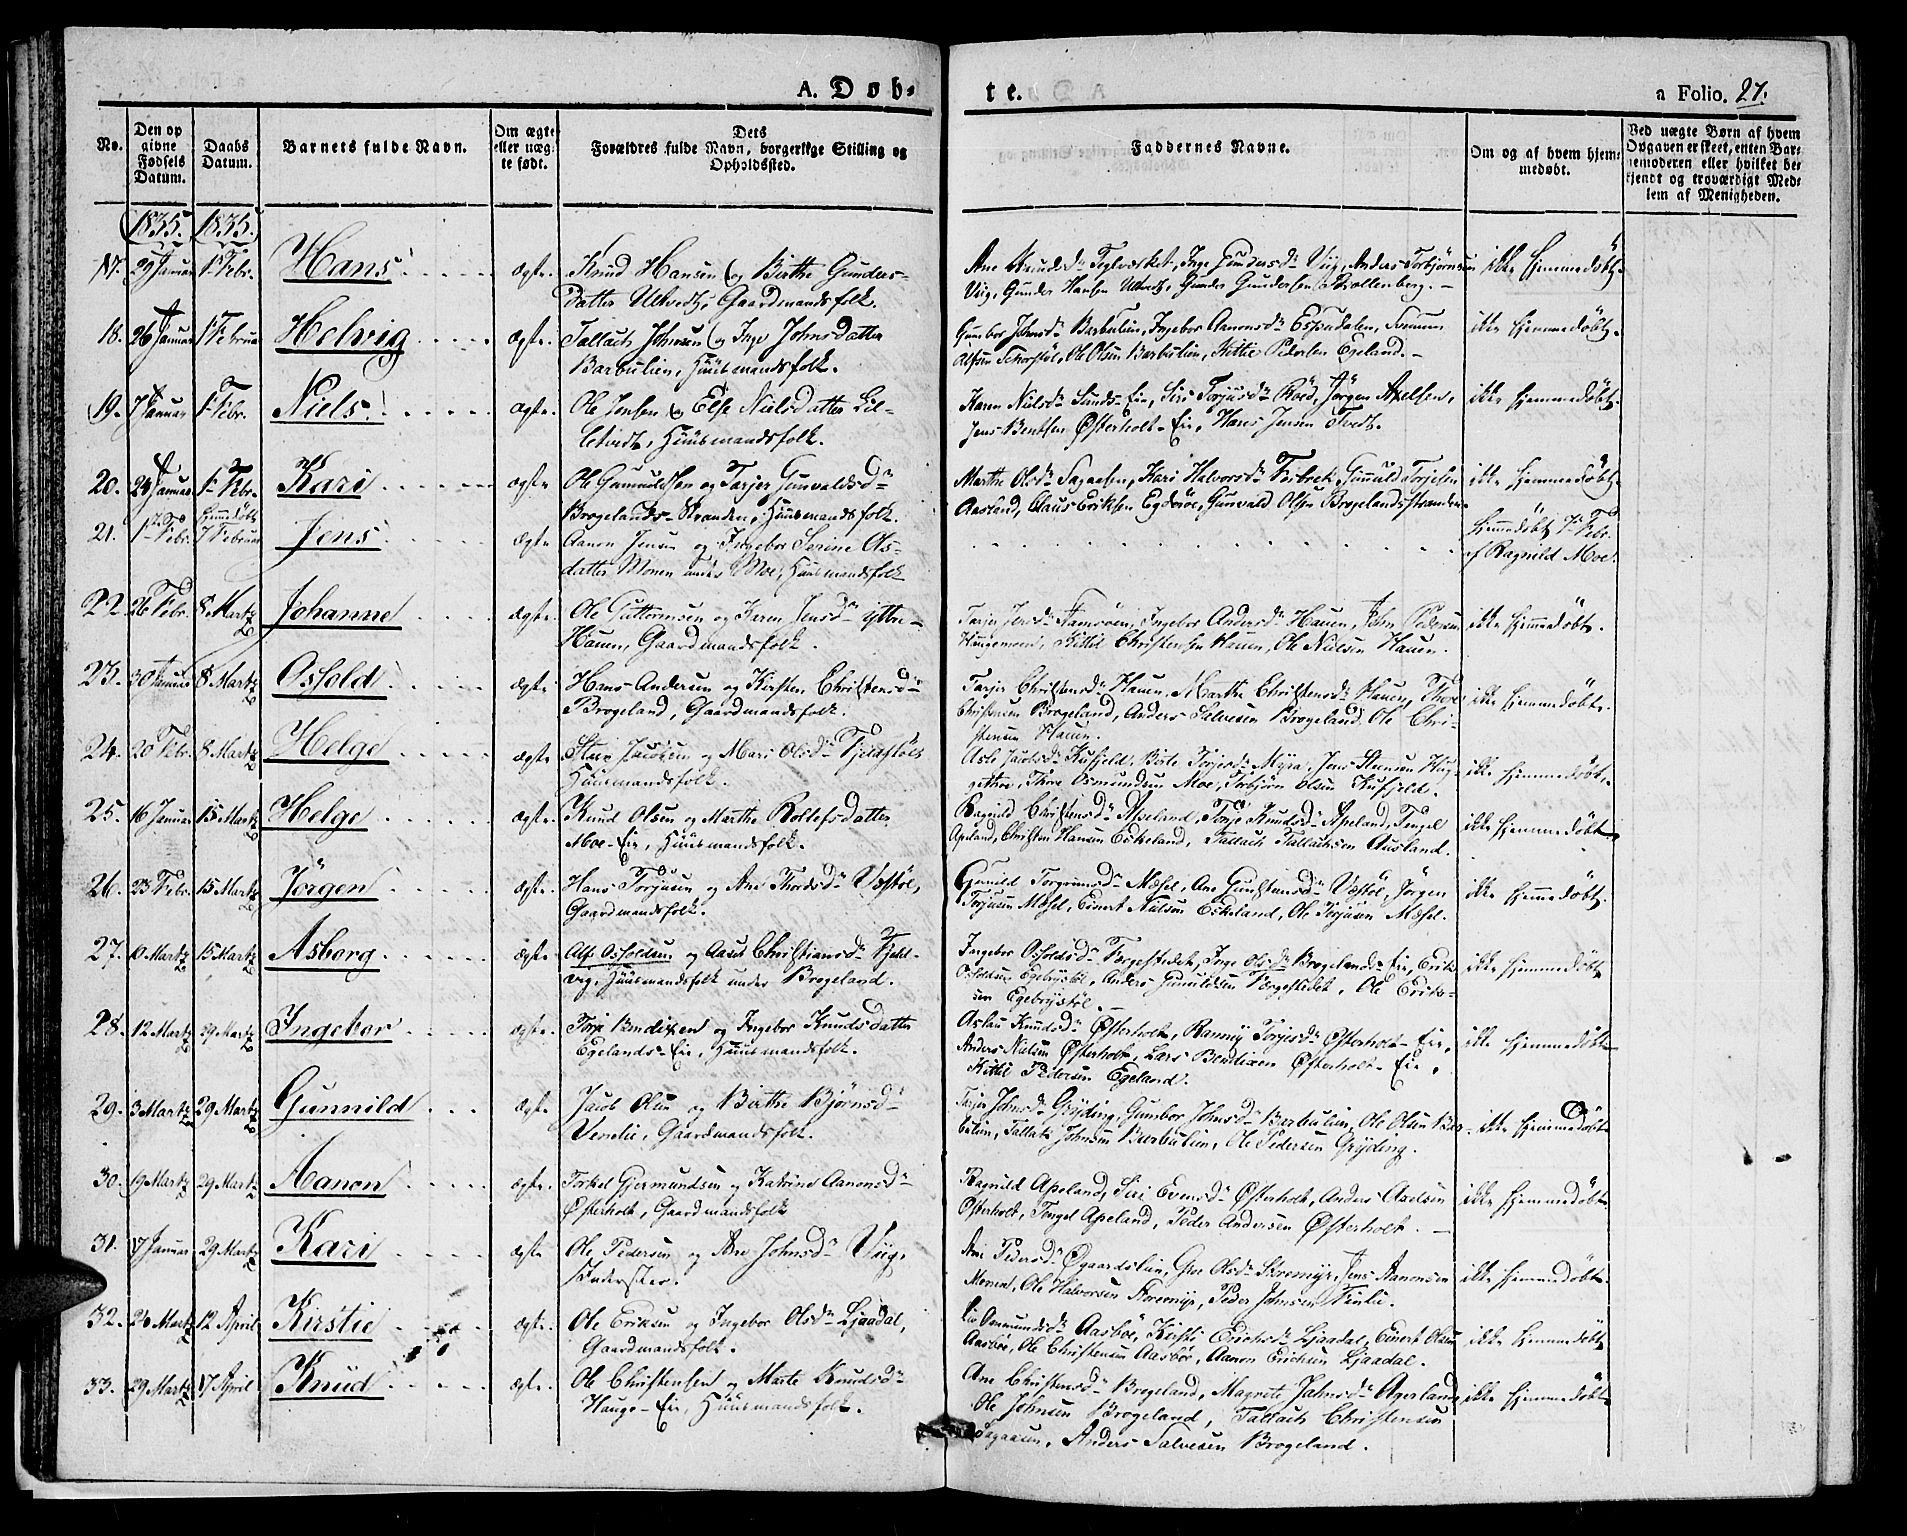 A. Døb-
te.
a Folio. 27.
No.
Den op
givne
Fødsels
Datum.
Daabs
Datum.
Barnets fulde Navn.
Om ægte
eller uæg-
te født.
Dets
Forældres fulde Navn, borgerlige Stilling og
Opholdssted.
Faddernes Navne.
Om og af hvem hjem-
medøbt.
Ved uægte Børn af hvem
Opgaven er skeet, enten Bar-
nemoderen eller hvilket be-
kjendt og troværdigt Med-
lem af Menigheden.
1835. 1835.
17. 29 Januar 1 Febr. Hans ægte. Knud Hansen og Birthe Gunders-
datter Gaardmandsfolk.
Ane Knudsd. Teglværket, Inge Gundersd. Viig, Anders Torbjørnsen
Viig, Gunder Hansen Gunder Gundersen
ikke hjemmedøbt.
18. 26 Januar 1 Februar Helvig ægte. Tallach Johnsen og Inge Johnsdatter
Barbulien, Huusmandsfolk.
Gunbor Johnsd. Barbulien, Ingebor Aanonsd. Espedalen,
Ole Olsen Barbulien, Kittil Pedersen Egeland.
ikke hjemmedøbt.
19. 7 Januar 1 Febr. Niels ægte. Ole Jensen og Else Nielsdatter Lil-
letvedt, Huusmandsfolk.
Karen Nielsd. Sunds-Eie, Siri Torjusd. Jørgen Axelsen,
Jens Bentsen Østerholt-Eie, Hans Jensen Tvedt.
ikke hjemmedøbt.
20. 24 Januar 1 Febr. Kari ægte Ole Gunnuldsen og Tarjer Gunvaldsd.
Brogelands-Stranden, Huusmandsfolk.
Marthe Olsd. Sagaasen, Kari Halvorsd. Gunnuld Torjesen
Aasland, Claus Eriksen Egderöe, Gunvald Olsen Brogelandsstranden.
ikke hjemmedøbt.
21. 1 Febr. hjemmedøbt 7 Februar Jens ægte Aanon Jensen og Ingebor Serine Ols-
datter Monen under Moe, Huusmandsfolk
hjemmedøbt 7 Febr.
af Ragnild Moe.
22. 26 Febr. 8 Martz Johanne ægte. Ole Guttormsen og Karen Jensd. yttre-
Hauen, Gaardmandsfolk.
Tarjer Jensd. Ingebor Andersd. Hauen, John Pedersen
Haugemoen, Kittil Christensen Hauen, Ole Nielsen Hauen.
ikke hjemmedøbt.
23. 30 Januar 8 Martz Osfold ægte Hans Andersen og Kirsten Christensd.
Brogeland, Gaardmandsfolk.
Tarjer Christensd. Hauen, Marthe Christensd. Hauen, Thore
Christensen Brogeland, Anders Salvesen Brogeland, Ole Chri-
stensen Hauen.
ikke hjemmedøbt.
24. 20 Febr. 8 Martz Helge ægte Jacobsen og Mari Olsd.
Huusmandsfolk.
Jacobsd. Kufjeld, Birte Torjusd. Myra, Jens Steensen
Thore Osmundsen Moe, Torbjørn Olsen Kufjeld.
ikke hjemmedøbt.
25. 16 Januar 15 Martz Helge ægte. Knud Olsen og Marthe Rollefsdatter
Moe-Eie, Huusmandsfolk.
Ragnild Christensd. Apeland, Torje Knudsd. Apeland, Tengel
Apeland, Christen Hansen Eskeland, Tallach Tallachsen Ausland.
ikke hjemmedøbt.
26. 23 Febr. 15 Martz Jörgen ægte. Hans Torjusen og Ane Thordsd. Væstöl,
Gaardmandsfolk.
Gunild Torgrimsd. Mæsel, Ane Væstöl, Jörgen
Torjusen Mæsel, Einert Nielsen Eskeland, Ole Torjusen Mæsel.
ikke hjemmedøbt.
27. Martz 15 Martz Asborg ægte. Alf Osfoldsen og Aaset Christiansd.
Huusmandsfolk under Brogeland.
Ingebor Osfoldsd. Inge Olsd. Brogelands-Eie, Erik
Osfoldsen Egebrystöl, Anders Gunnildsen Ole Erik-
sen Egebrystöl.
ikke hjemmedøbt
28. 12 Martz 29 Martz Ingebor ægte. Torje Bendixen og Ingebor Knudsdatter
Egelands-Eie, Huusmandsfolk.
Aslau Knudsd. Østerholt, Ranney Torjesd. Østerholt-Eie,
Anders Nielsen Østerholt, Lars Bendixen Østerholt-Eie,
Kittil Pedersen Egeland.
ikke hjemmedøbt
29. 3 Martz 29 Martz Gunnild ægte. Jacob Olsen og Birthe Björnsd.
Venelie, Gaardmandsfolk.
Tarjer Johnsd. Gryding, Gunbor Johnsd. Barbulien, Ole Olsen Bar-
bulien, Tallak Johnsen Barbulien, Ole Pedersen Gryding.
ikke hjemmedøbt
30. 19 Martz 29 Martz Aanon ægte. Torkel Gjermundsen og Katrine Aanonsd.
Østerholt, Gaardmandsfolk
Ragnild Apeland, Siri Evensd. Østerholt, Anders Axelsen
Østerholt, Tengel Apeland, Peder Andersen Østerholt.
ikke hjemmedøbt
31. 17 Januar 29 Martz Kari ægte Ole Pedersen og Ane Johnsd. Viig,
Inderster.
Ane Pedersd. Øgaardslien, Groe Olsd. Storemyr, Jens Aanonsen
Monen, Ole Halvorsen Storemyr, Peder Johnsen
ikke hjemmedøbt
32. 26 Martz 12 April Kirstie ægte. Ole Eriksen og Ingebor Olsd. Ljaadal,
Gaardmandsfolk.
Liv Osmundsd. Aasbøe, Kirsti Erichsd. Ljaadal, Einert Olsen
Aasbøe, Ole Christensen Aasbøe, Aanon Erichsen Ljaadal.
ikke hjemmedøbt
33. 29 Martz 17 April Knud ægte. Ole Christensen og Marte Knudsd.
Hauge-Eie, Huusmandsfolk.
Ane Christensd. Brogeland, Magrete Johnsd. Ageland
Ole Johnsen Brogeland, Tallach Christensen
Sagaasen, Anders Salvesen Brogeland.
ikke hjemmedøbt